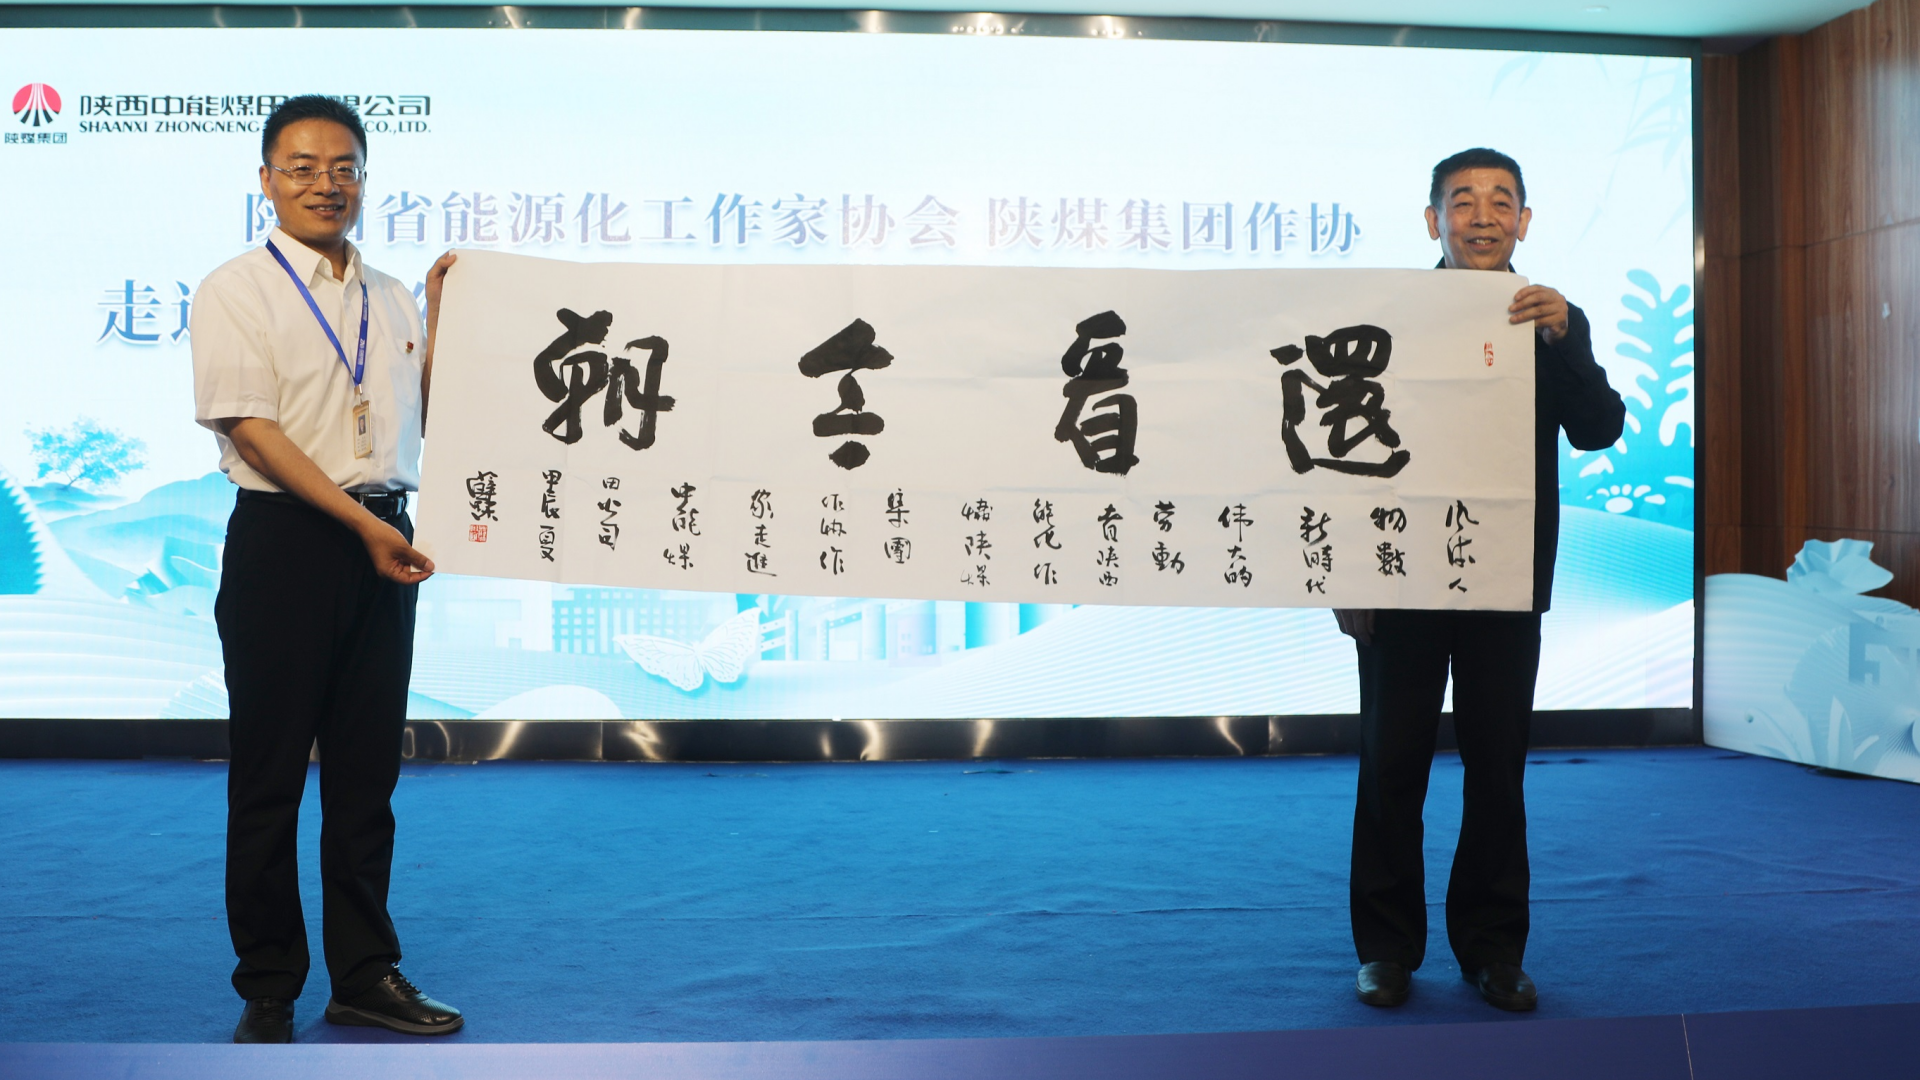 陕煤集团
陕西中能煤田有限公司
SHAANXI ZHONGNENG CO.,LTD.
陕西省能源化工作家协会 陕煤集团作协
走进
還看今朝
风流人
物數
新時代
伟大的
劳動
者陕西
能化作
协陕煤
集團
作协作
家走進
中能煤
田公司
甲辰夏